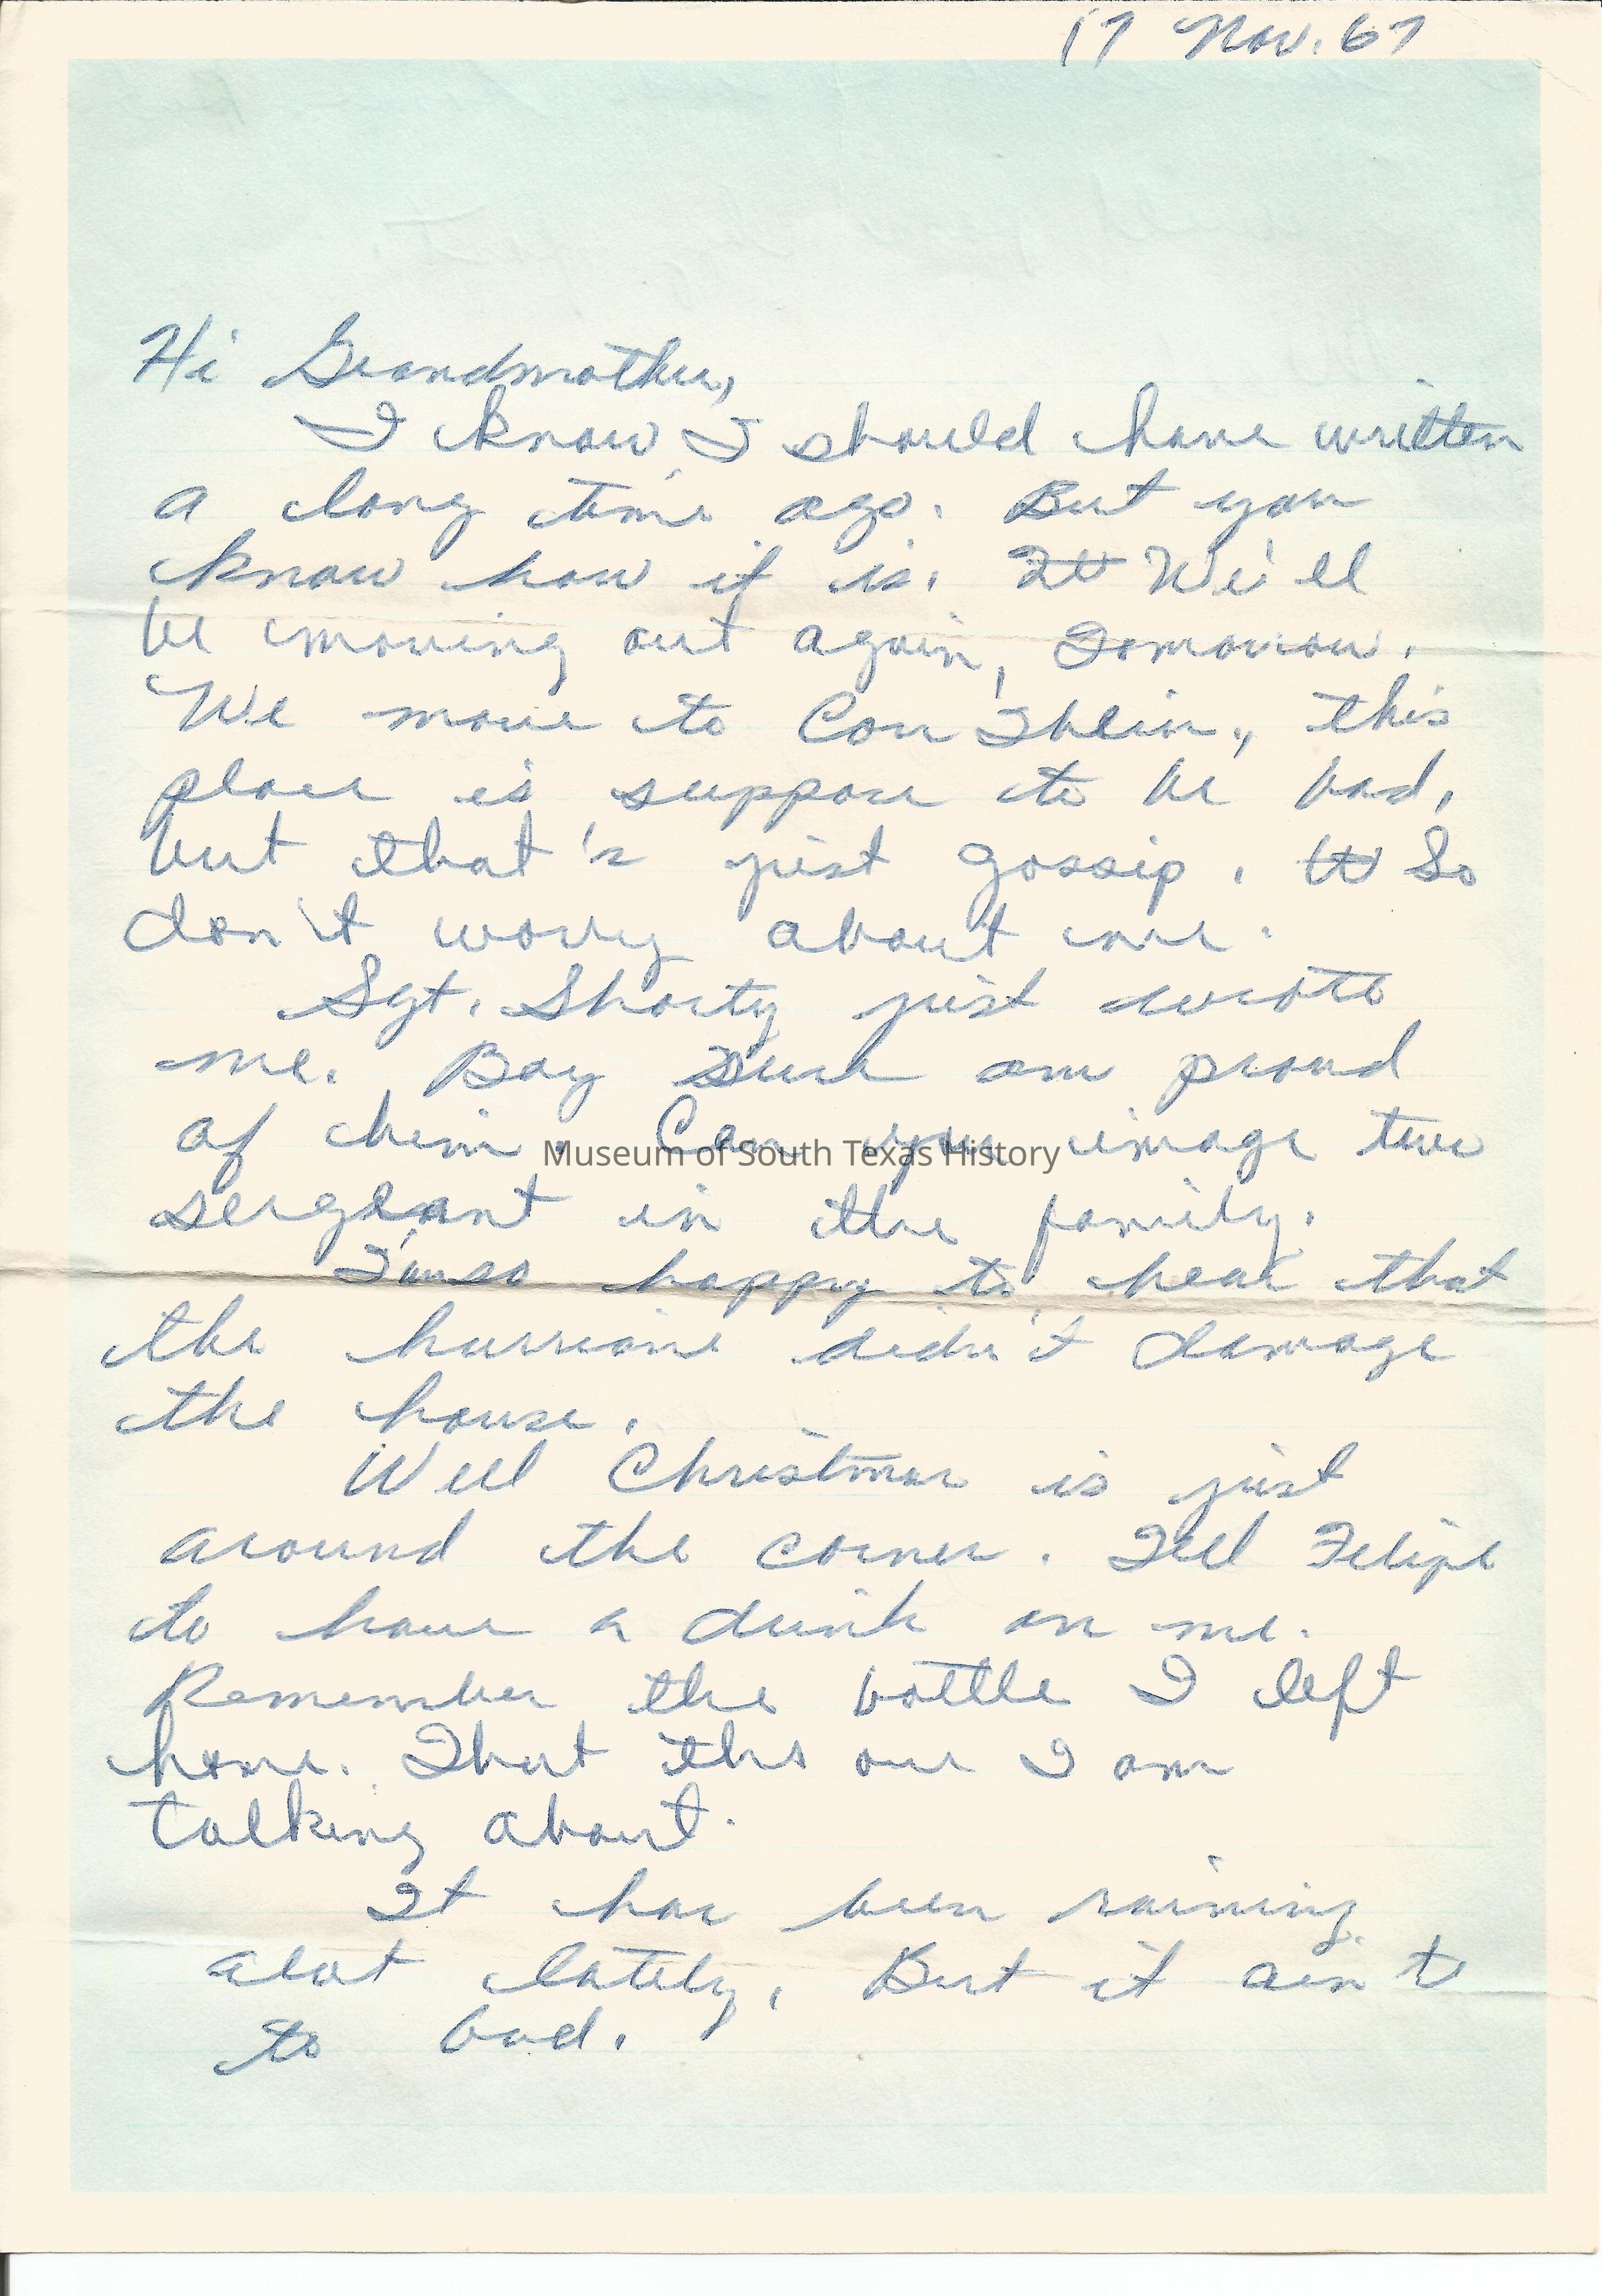 17 Nov. 67
Hi Grandmother,
I know I should have written
a long time ago. But you
know how it is. It We'll
be moving out again, Tomorrow.
We move to Con Thein, this
place is suppose to be bad,
but that's just gossip. W So
don't worry about me.
Sgt. Shorty just wrote
me. Boy Sure am proud
of him. Can you image two
Museum of South Texas History
sergeant in the family.
I'm so happy to hear that
the hurricane didn't damage
the house.
Well Christmas is just
around the corner. Tell Felipe
to have a drink on me.
Remember the bottle I left
home. That the one I am
talking about.
It has been raining
alot lately, But it ain't
to bad.